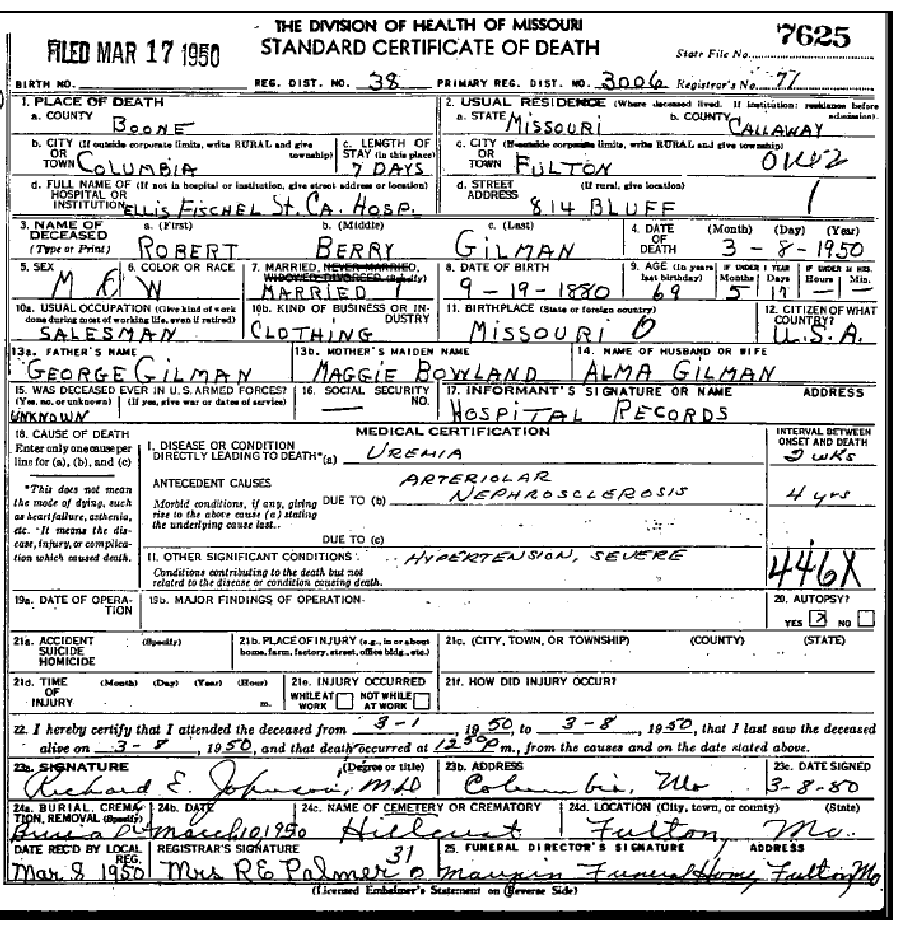 THE DIVISION OF HEALTH OF MISSOURI
FILED MAR 17 1950 STANDARD CERTIFICATE OF DEATH State File No. 7625
BIRTH NO. REG. DIST. NO. 38 PRIMARY REG. DIST. NO. 3006 Registrar's No. 77
1. PLACE OF DEATH
a. COUNTY BOONE
2. USUAL RESIDENCE (Where deceased lived. If institution: residence before admission).
a. STATE MISSOURI b. COUNTY CALLAWAY
b. CITY (If outside corporate limits, write RURAL and give township) OR TOWN COLUMBIA
c. LENGTH OF STAY (in this place) 7 DAYS
c. CITY (If outside corporate limits, write RURAL and give township) OR TOWN FULTON
d. FULL NAME OF (If not in hospital or institution, give street address or location) HOSPITAL OR INSTITUTION ELLIS FISCHEL ST. CA. HOSP.
d. STREET ADDRESS (If rural, give location) 814 BLUFF 1
3. NAME OF DECEASED (Type or Print) a. (First) ROBERT b. (Middle) BERRY c. (Last) GILMAN
4. DATE OF DEATH (Month) (Day) (Year) 3-8-1950
5. SEX M
6. COLOR OR RACE W
7. MARRIED, NEVER MARRIED, WIDOWED, DIVORCED (Specify) MARRIED 1
8. DATE OF BIRTH 9-19-1880
9. AGE (In years last birthday) 69 IF UNDER 1 YEAR Months 5 Days 17 IF UNDER 24 HRS. Hours Min.
10a. USUAL OCCUPATION (Give kind of work done during most of working life, even if retired) SALESMAN
10b. KIND OF BUSINESS OR INDUSTRY CLOTHING
11. BIRTHPLACE (State or foreign country) MISSOURI
12. CITIZEN OF WHAT COUNTRY? U.S.A.
13a. FATHER'S NAME GEORGE GILMAN
13b. MOTHER'S MAIDEN NAME MAGGIE BOWLAND
14. NAME OF HUSBAND OR WIFE ALMA GILMAN
15. WAS DECEASED EVER IN U.S. ARMED FORCES? (Yes, no, or unknown) (If yes, give war or dates of service) UNKNOWN
16. SOCIAL SECURITY NO. —
17. INFORMANT'S SIGNATURE OR NAME ADDRESS HOSPITAL RECORDS
18. CAUSE OF DEATH
Enter only one cause per line for (a), (b), and (c)
*This does not mean the mode of dying, such as heart failure, asthenia, etc. It means the disease, injury, or complication which caused death.
MEDICAL CERTIFICATION
INTERVAL BETWEEN ONSET AND DEATH
I. DISEASE OR CONDITION DIRECTLY LEADING TO DEATH* (a) UREMIA 2 WKS
ANTECEDENT CAUSES
Morbid conditions, if any, giving rise to the above cause (a) stating the underlying cause last.
DUE TO (b) ARTERIOLAR NEPHROSCLEROSIS 4 yrs
DUE TO (c)
II. OTHER SIGNIFICANT CONDITIONS HYPERTENSION, SEVERE
Conditions contributing to the death but not related to the disease or condition causing death.
446X
19a. DATE OF OPERATION
19b. MAJOR FINDINGS OF OPERATION
20. AUTOPSY? YES NO
21a. ACCIDENT SUICIDE HOMICIDE (Specify)
21b. PLACE OF INJURY (e.g., in or about home, farm, factory, street, office bldg., etc.)
21c. (CITY, TOWN, OR TOWNSHIP) (COUNTY) (STATE)
21d. TIME OF INJURY (Month) (Day) (Year) (Hour) m.
21e. INJURY OCCURRED WHILE AT WORK NOT WHILE AT WORK
21f. HOW DID INJURY OCCUR?
22. I hereby certify that I attended the deceased from 3-1, 1950, to 3-8, 1950, that I last saw the deceased
alive on 3-8, 1950, and that death occurred at m., from the causes and on the date stated above.
23a. SIGNATURE (Degree or title) Richard E. Johnson, MD
23b. ADDRESS Columbia, Mo
23c. DATE SIGNED 3-8-50
24a. BURIAL, CREMATION, REMOVAL (Specify) Burial
24b. DATE March 10, 1950
24c. NAME OF CEMETERY OR CREMATORY Hillcrest
24d. LOCATION (City, town, or county) (State) Fulton, Mo.
DATE REC'D BY LOCAL REG. Mar 8 1950
REGISTRAR'S SIGNATURE Mrs RE Palmer 31
25. FUNERAL DIRECTOR'S SIGNATURE ADDRESS Maupin Funeral Home, Fulton Mo
(Licensed Embalmer's Statement on Reverse Side)